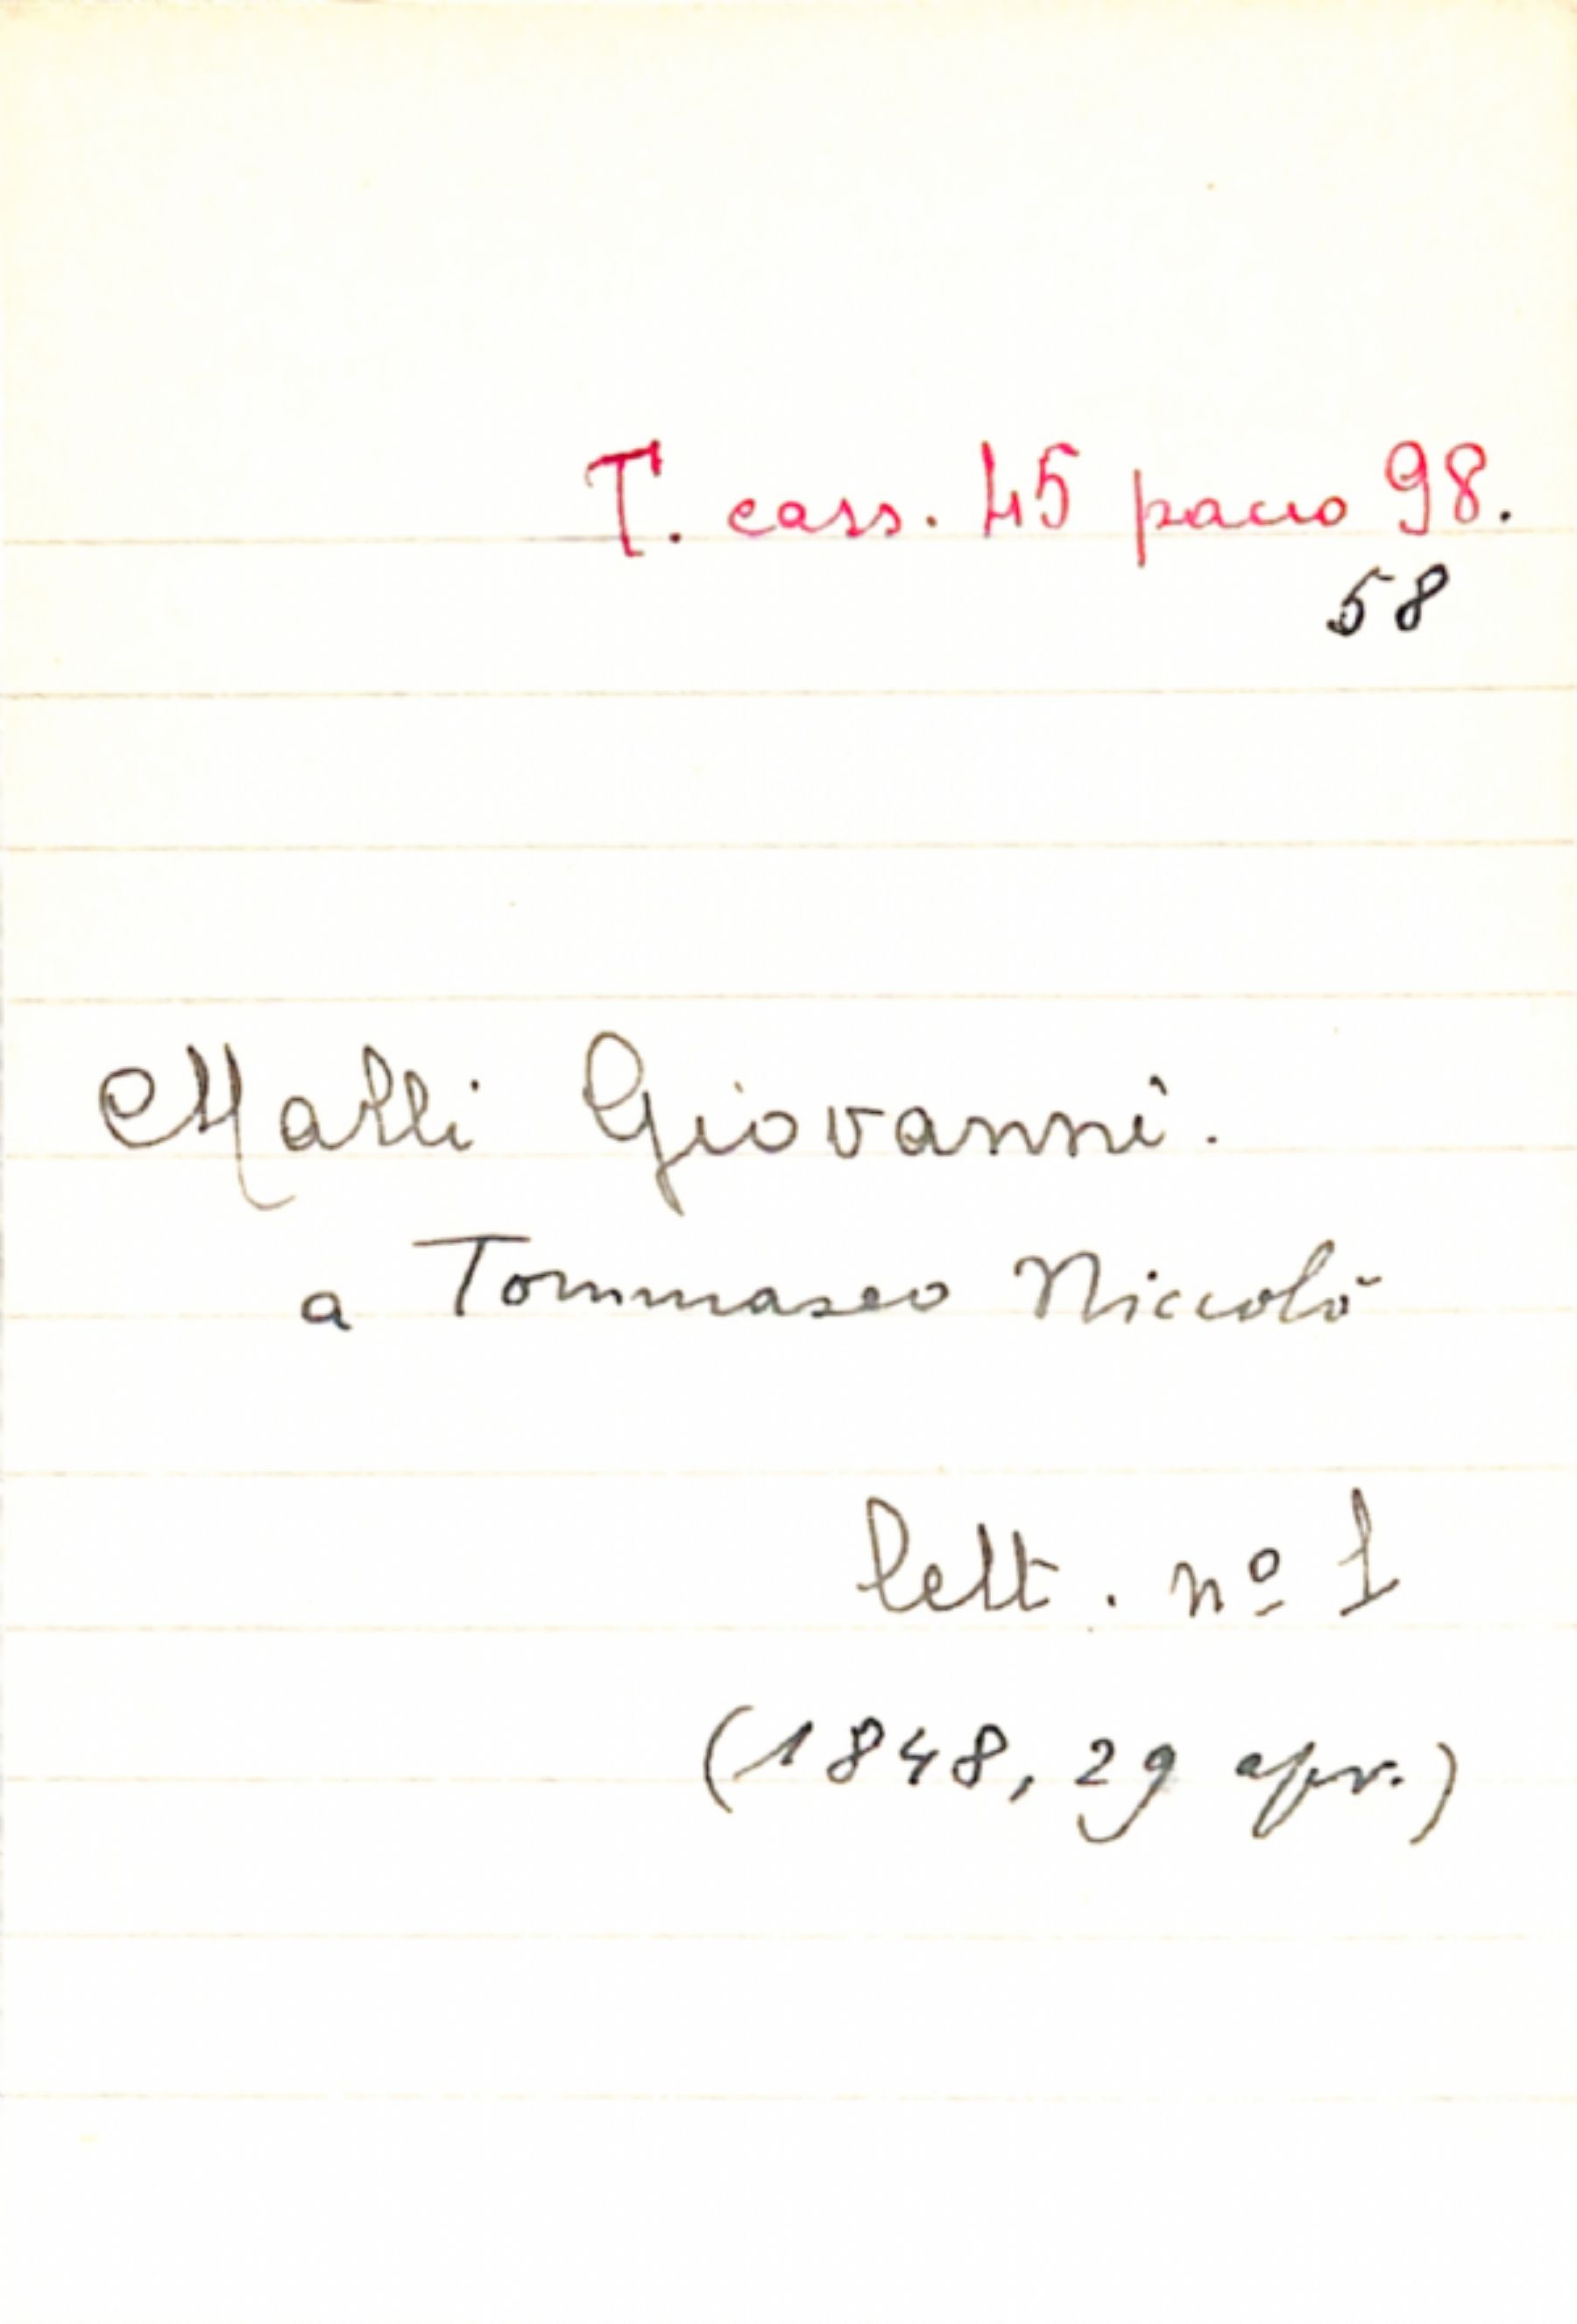 T. cass. 45 pacco 98.
58
Malli Giovanni.
a Tommaseo Niccolò
lett. nº 1
(1848, 29 apr.)